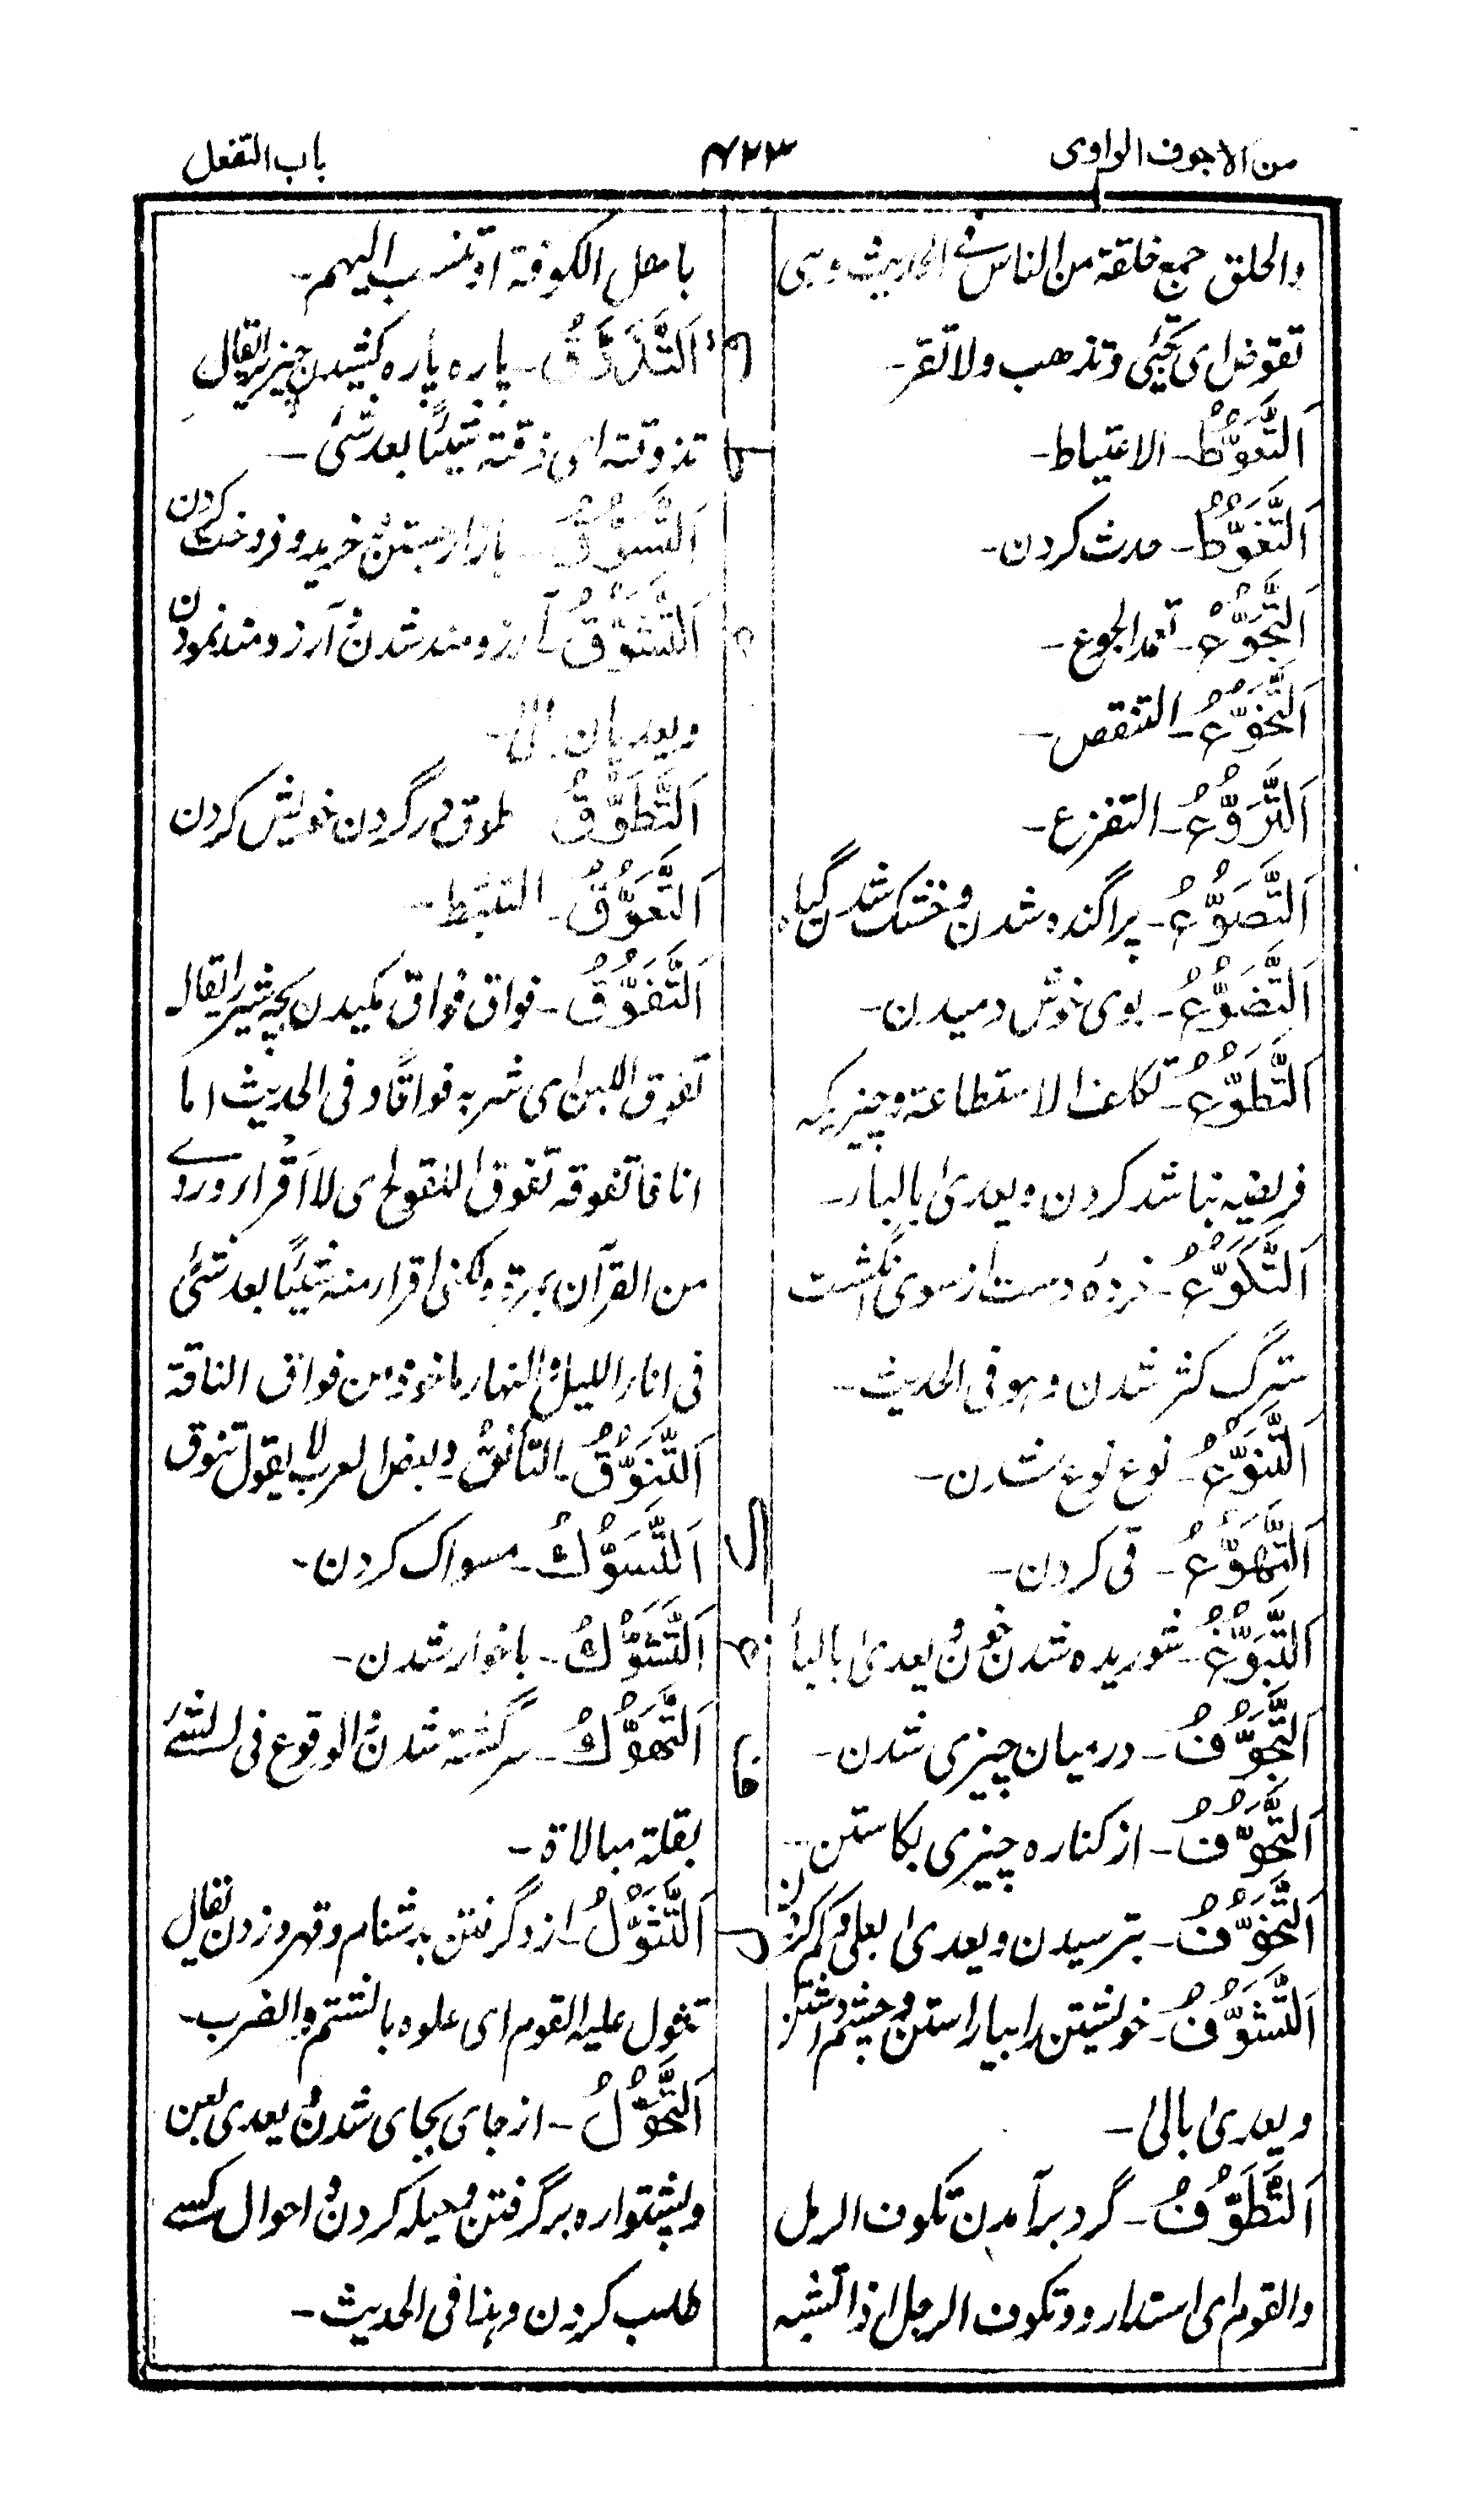 من الاجوف الواوی
۶۲۳
باب التفعل
والحلق جمع خلقة من الناس فی الحدیث وہی
تقوض ای تجیٔ وتذهب ولا تقر۔
اَلتَّعَوُّطُ۔ الاعتیاط۔
اَلتَّغَوُّطُ۔ حدث کردن۔
اَلتَّجَوُّعُ۔ تعمد الجوع۔
اَلتَّخَوُّعُ۔ التنقص۔
اَلتَّرَوُّعُ۔ التفزع۔
اَلتَّصَوُّعُ۔ پراگنده شدن و خشک شدن گیاه
اَلتَّضَوُّعُ۔ بوی خوش دمیدن۔
اَلتَّطَوُّعُ۔ تکلف الاستطاعة و چیزیکه
فریضه نباشد کردن و یعدیٰ بالباء۔
اَلتَّكَوُّعُ۔ خردۂ دست از سوی انگشت
سترگ کثر شدن و ہو فی الحدیث۔
اَلتَّنَوُّعُ۔ نوع نوع شدن۔
اَلتَّهَوُّعُ۔ قی کردن۔
اَلتَّبَوُّغُ۔ شوریده شدن خون و یعدیٰ بالبأ
اَلتَّجَوُّفُ۔ درمیان چیزی شدن۔
اَلتَّحَوُّفُ۔ از کناره چیزی بکاستن۔
اَلتَّخَوُّفُ۔ بترسیدن و یعدیٰ بعلی و کم کردن
اَلتَّشَوُّفُ۔ خویشتن را بیاراستن و چشم داشتن
و یعدیٰ بالیٰ۔
اَلتَّطَوُّفُ۔ گرد برآمدن تکوف الرمل
والقوم ای استداروا وتکوف الرجل اذا تشبه
باهل الکوفة او تنسب الیهم۔
اَلتَّذَوُّقُ۔ پاره پاره کشیدن چیز یقال
تذوقته ای ذقته شیئًا بعد شیٔ۔
اَلتَّسَوُّقُ۔ بازار جستن و خرید و فروخت کردن
اَلتَّشَوُّقُ۔ آرزومند شدن و آرزومند نمودن
ویعدیان بالیٰ۔
اَلتَّطَوُّقُ۔ طوق در گردن خویش کردن
اَلتَّعَوُّقُ۔ التثبط۔
اَلتَّفَوُّقُ۔ فواق فواق مکیدن بچه شیر را یقال
تفوق اللبن ای شربه فواقًا و فی الحدیث اما
انا فاتفوقه تفوق اللقوح ای لا اقرأ وردی
من القرآن بمرة ولکنی اقرأ منه شیئًا بعد شیٔ
فی اناء اللیل و النهار ماخوذ من فواق الناقة
اَلتَّنَوُّقُ۔ التأنق۔ و بعض العرب لا یقول تنوق
اَلتَّسَوُّكُ۔ مسواک کردن۔
اَلتَّشَوُّكُ۔ باخوار شدن۔
اَلتَّهَوُّكُ۔ سرگشته شدن و الوقوع فی الشئ
بقلة مبالاة۔
اَلتَّثَوُّلُ۔ ازو گرفتن بدشنام و قهر و زدن یقال
تثول علیه القوم ای علوه بالشتم والضرب۔
اَلتَّحَوُّلُ۔ از جای بجای شدن و یعدی بعن
و پشتواره برگرفتن و حیله کردن و احوال کسے
طلب کردن و ہذا فی الحدیث۔